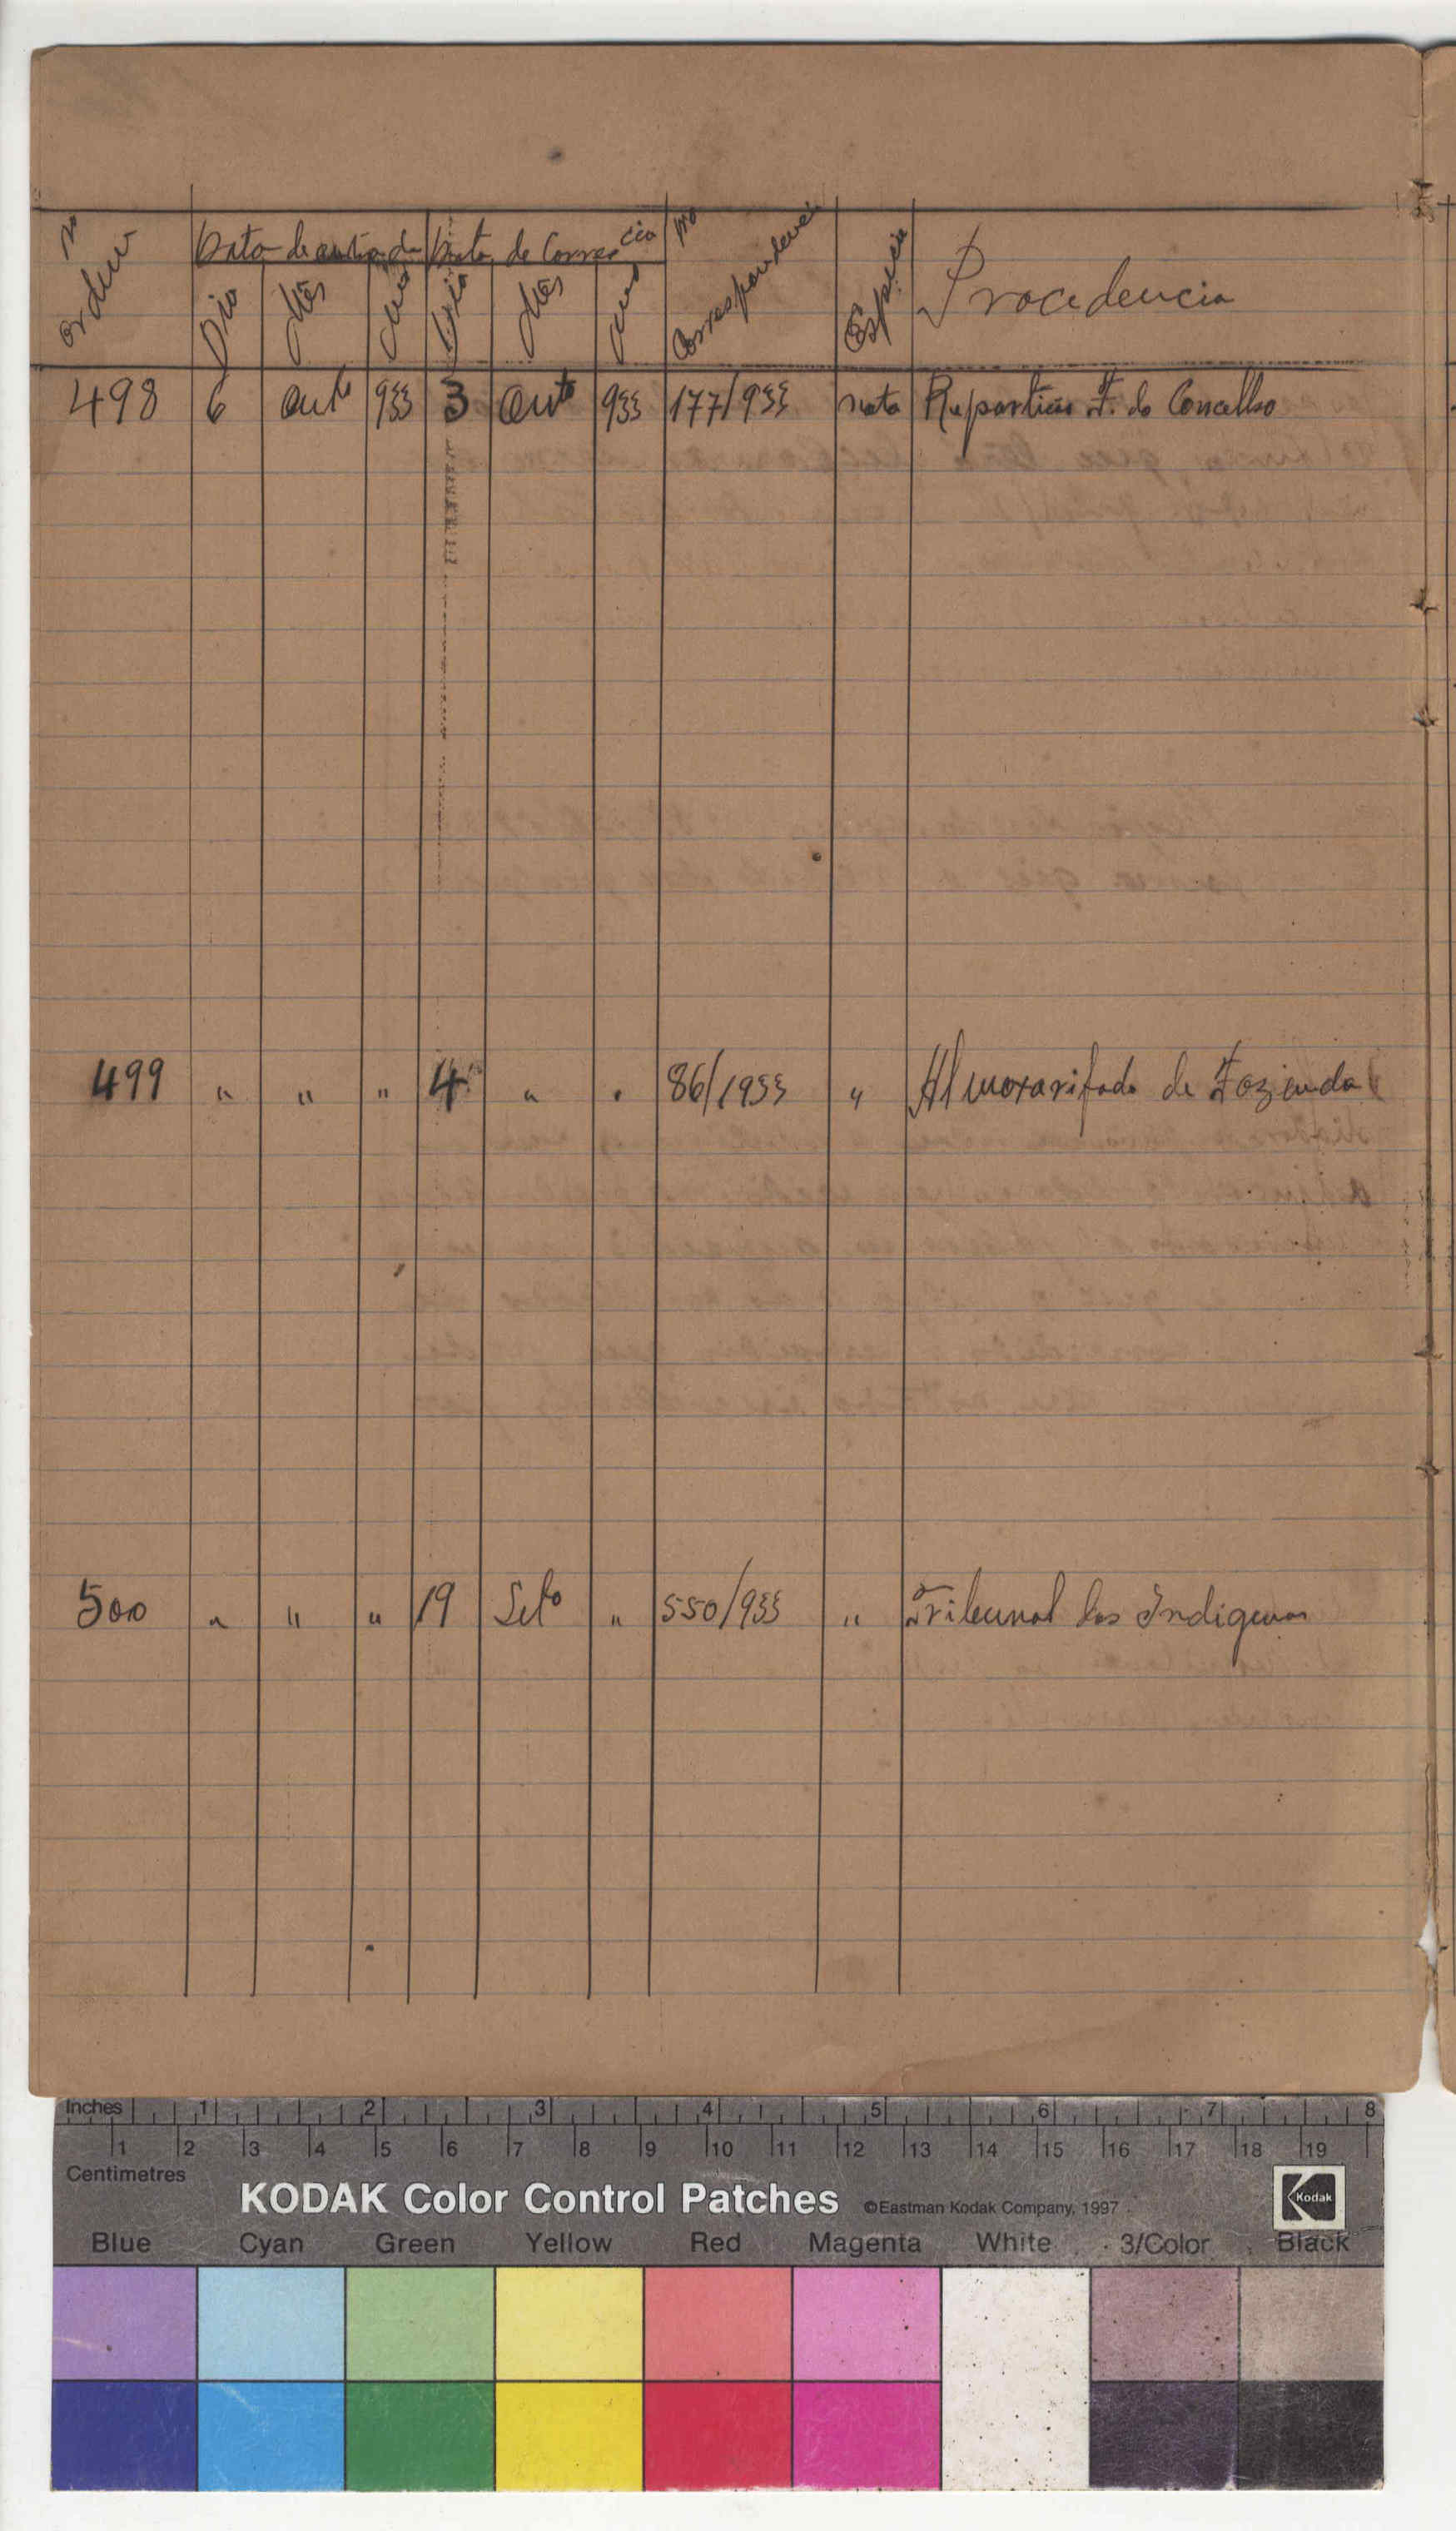 No ordem Data de entrada Data de Correscia No Correspondencia Especie Procedencia
Dia Mês Ano Dia Mês Ano
498 6 Outo 933 3 Outo 933 177/933 nota Repartição F. do Concelho
499 " " " 4 " " 86/1933 " Almoxarifado de Fazenda
500 " " " 19 Seto " 550/933 " Tribunal dos Indigenas
Inches 1 2 3 4 5 6 7 8
1 2 3 4 5 6 7 8 9 10 11 12 13 14 15 16 17 18 19
Centimetres
KODAK Color Control Patches ©Eastman Kodak Company, 1997 Kodak
Blue Cyan Green Yellow Red Magenta White 3/Color Black